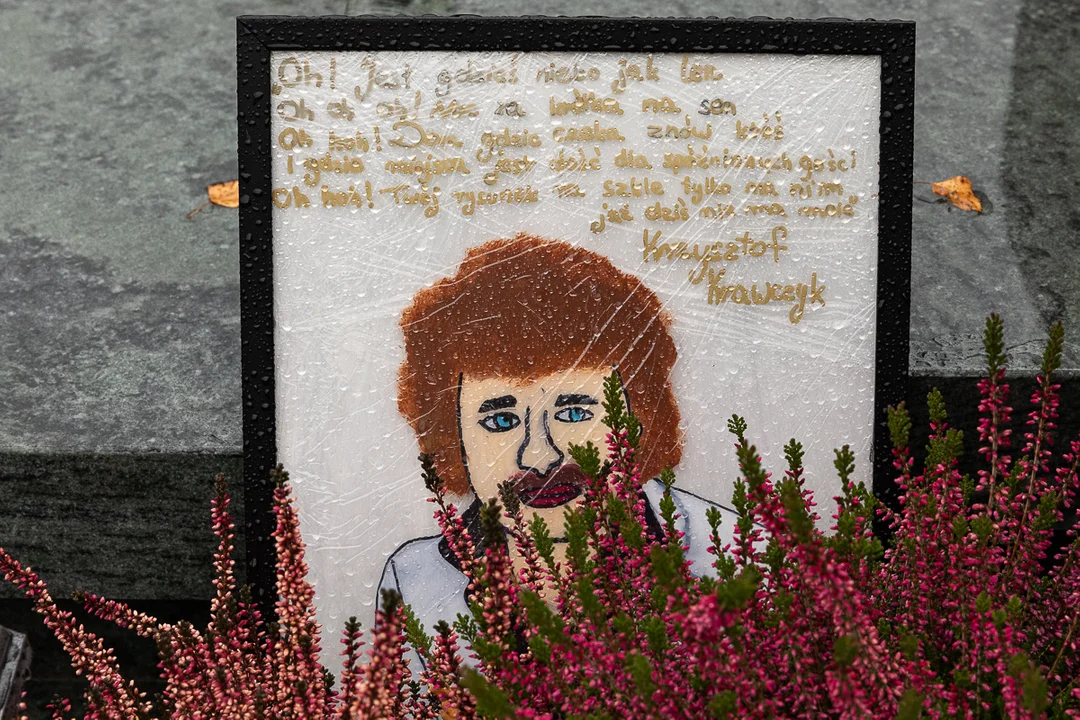 Oh! Jest gdzieś niebo jak len
Oh oh oh! Mam za łóżka na sen
Oh hoh! Dom, gdzie czeka znów ktoś
I gdzie miejsca jest dość dla spóźnionych gości
Oh hoh! Twój rysunek na szkle tylko na nim
już dziś nie ma mnie
Krzysztof
Krawczyk